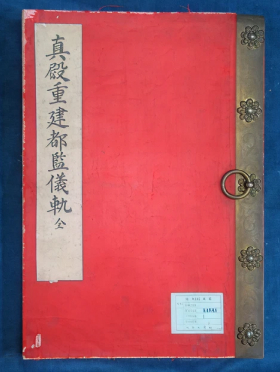 真殿重建都監儀軌 全